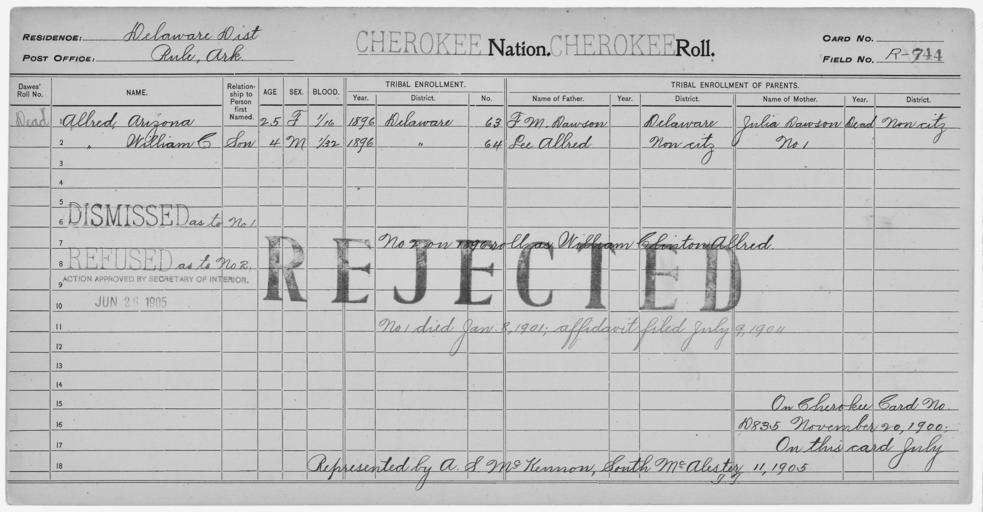 RESIDENCE: Delaware Dist
POST OFFICE: Rule, Ark.
CHEROKEE Nation. CHEROKEE Roll.
CARD NO.
FIELD NO. R-744
Dawes' Roll No. NAME. Relationship to Person first Named. AGE SEX. BLOOD. TRIBAL ENROLLMENT. TRIBAL ENROLLMENT OF PARENTS.
Year. District. No. Name of Father. Year. District. Name of Mother. Year. District.
Dead 1 Allred, Arizona 25 F 1/16 1896 Delaware 63 F. M. Dawson Delaware Julia Dawson Dead Non citz
2 " William C Son 4 M 1/32 1896 " 64 Lee Allred Non citz No 1
3
4
5
6 DISMISSED as to No 1.
7 No 2 on 1896 roll as William Clinton Allred.
8 REFUSED as to No 2.
REJECTED
9 ACTION APPROVED BY SECRETARY OF INTERIOR.
10 JUN 26 1905
11 No 1 died Jan. 8, 1901; affidavit filed July 9, 1904
12
13
14
15 On Cherokee Card No.
16 D835 November 20, 1900.
17 On this card July
18 Represented by A. S. McKennon, South McAlester, 11, 1905
I T